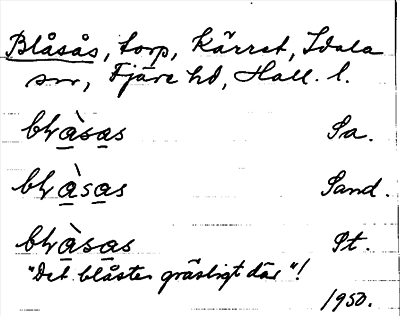 Blåsås, torp, Kärret, Idala
sn, Fjäre hd, Hall. l.
bḷàsas Sa.
bḷàsas Sand.
bḷàsas St.
"Det blåster gräsligt där"!
1950.